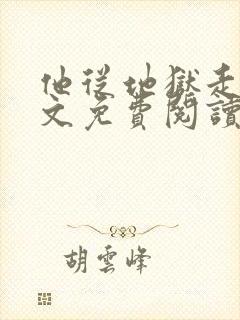 他從地獄走
文免費閱讀
胡雲峰